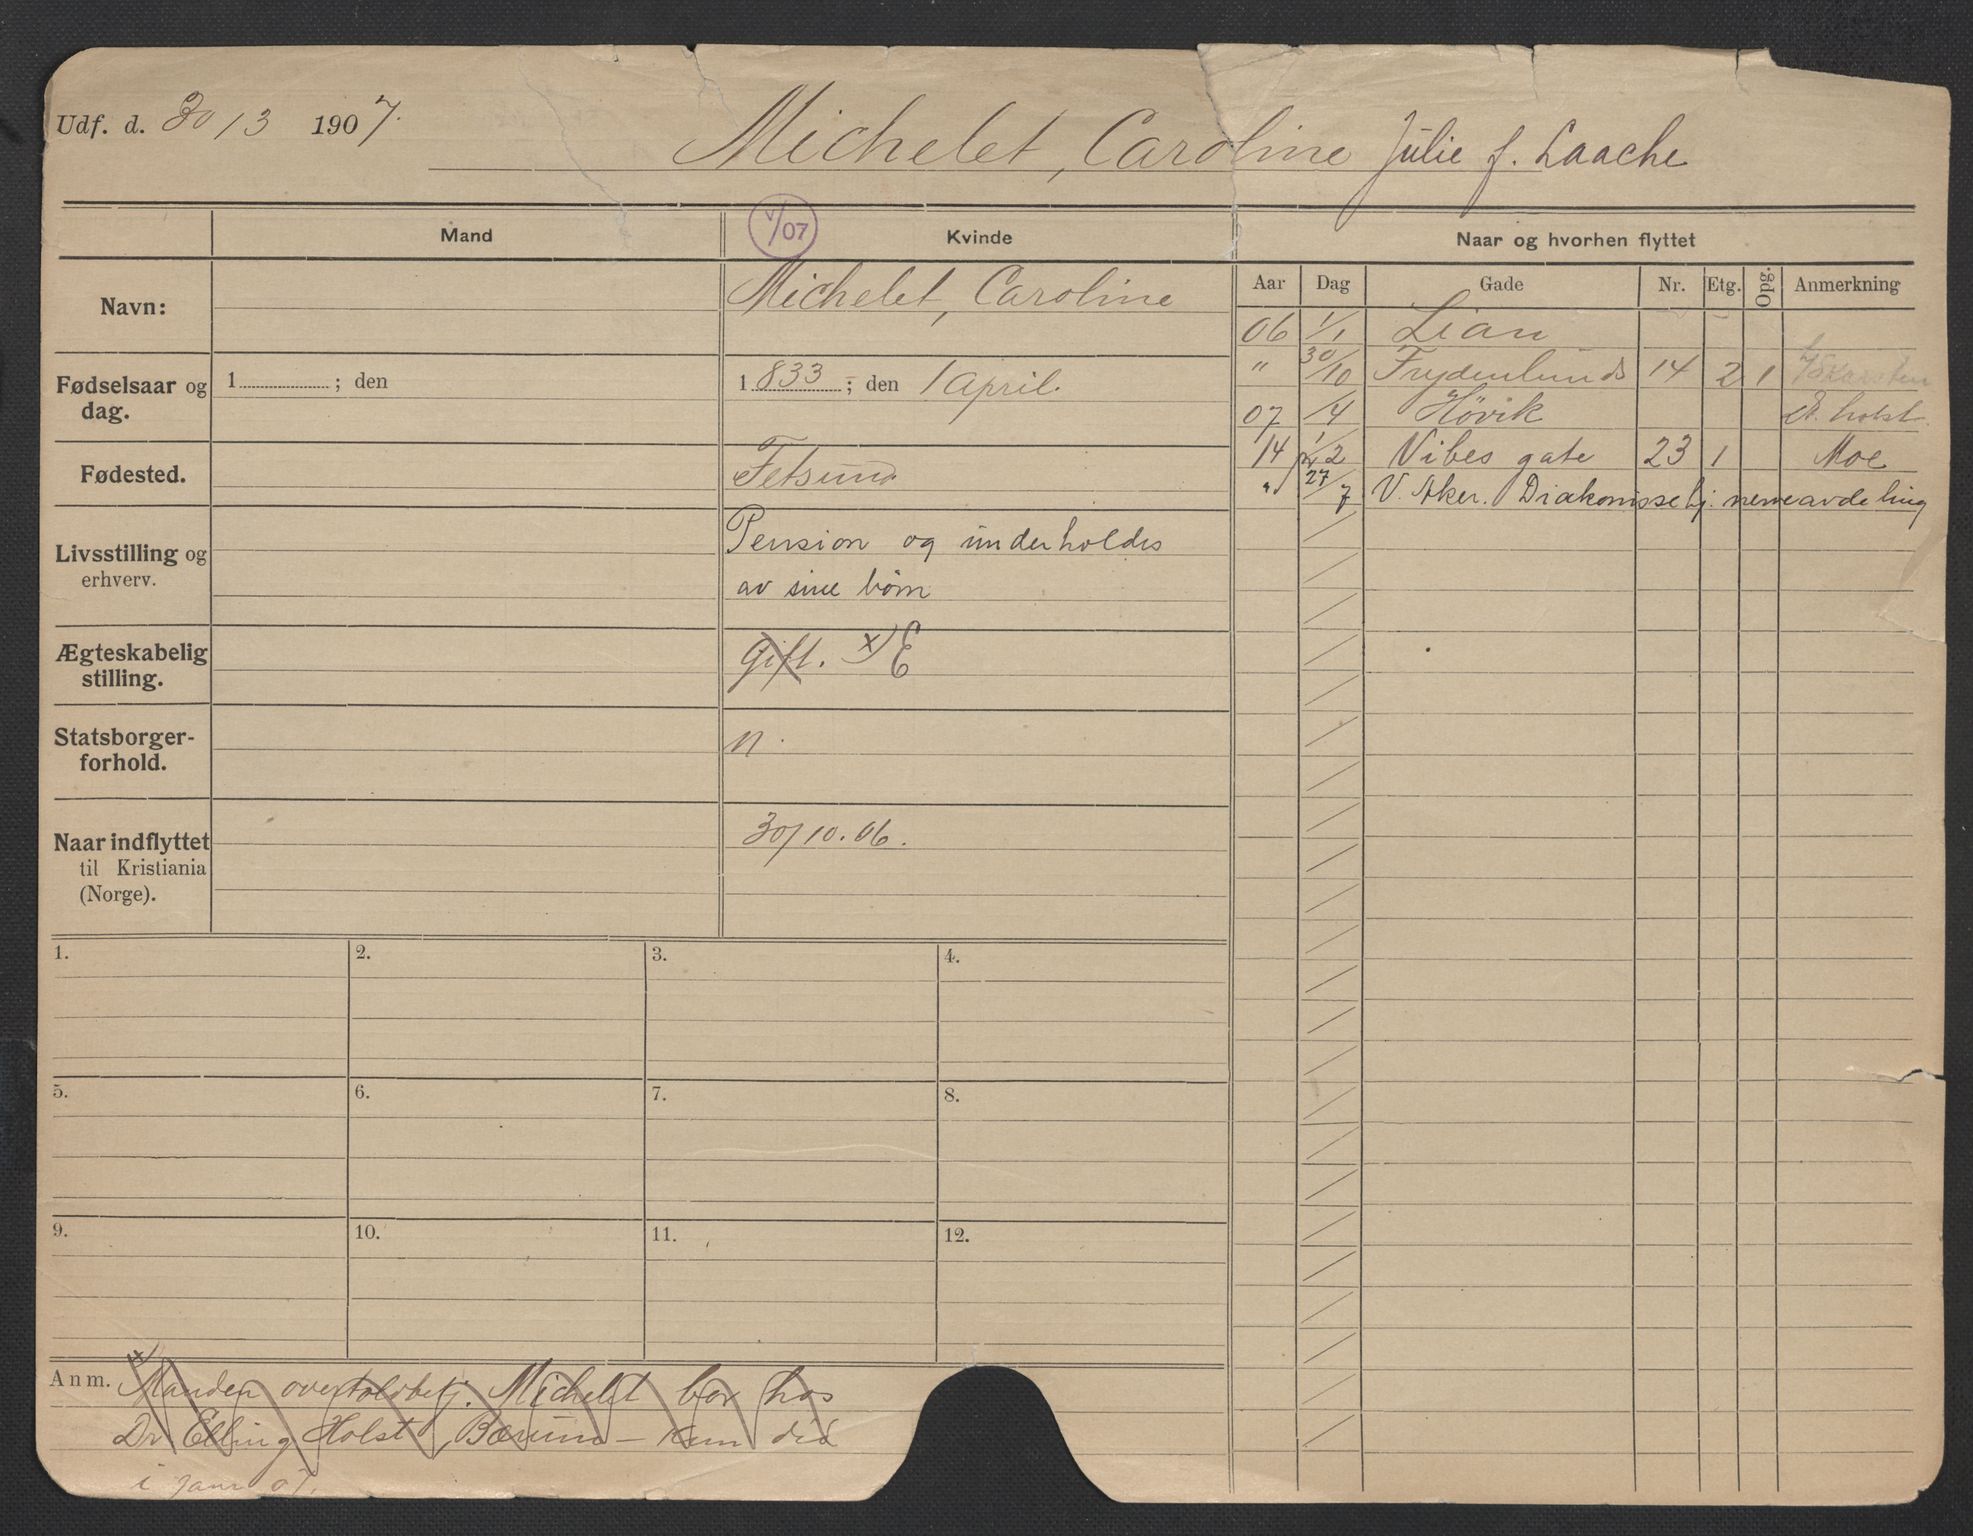 Udf. d. 30/3 1907.
Michelet, Caroline Julie f. Laache
Mand
V/07
Kvinde
Naar og hvorhen flyttet
Navn:
Michelet, Caroline
Fødselsaar og dag.
1 ; den
1 833 ; den 1 april.
Fødested.
Fetsund
Livsstilling og erhverv.
Pension og underholdes
av sine børn
Ægteskabelig stilling.
Gift. x) E
Statsborgerforhold.
n.
Naar indflyttet til Kristiania (Norge).
30/10.06.
Aar Dag Gade Nr. Etg. Opg. Anmerkning
06 1/1 Lian
" 30/10 Frydenlunds 14 2 1 Karsten
07 /4 Høvik Holst.
14 1/2 Vibes gate 23 1 Moe
" 27/7 V. Aker. Diakonissehj. nerveavdeling
1.
2.
3.
4.
5.
6.
7.
8.
9.
10.
11.
12.
Anm. x) Manden overtoldbetj. Michelet bor hos
Dr Elling Holst, Bærum – kom did
i janr 07.